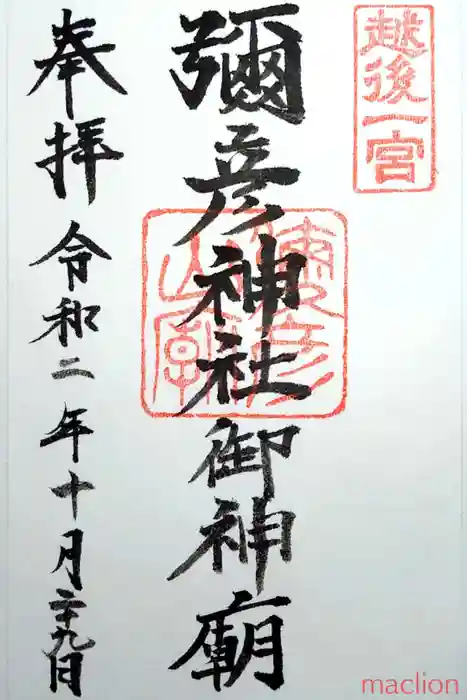 越後一宮
彌彦神社御神廟
奉拝 令和二年十月二十九日
maclion